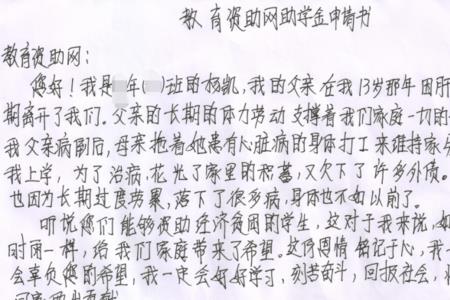 教育资助网助学金申请书
教育资助网：
您好！我是 年( )班的杨凯，我的父亲在我13岁那年因肝
期离开了我们。父亲的长期的体力劳动支撑着我们家庭一切的
我父亲病倒后，母亲拖着她患有心脏病的身体打工来维持家
我上学，为了治病，花光了家里的积蓄，又欠下了许多外债。
也因为长期过度劳累，落下了很多病，身体也不如以前了。
听说您们能够资助经济贫困的学生，这对于我来说，如
时雨一样，给我们家庭带来了希望。这份恩情铭记于心，我一
会辜负您的希望，我一定会好好学习，刻苦奋斗，回报社会，